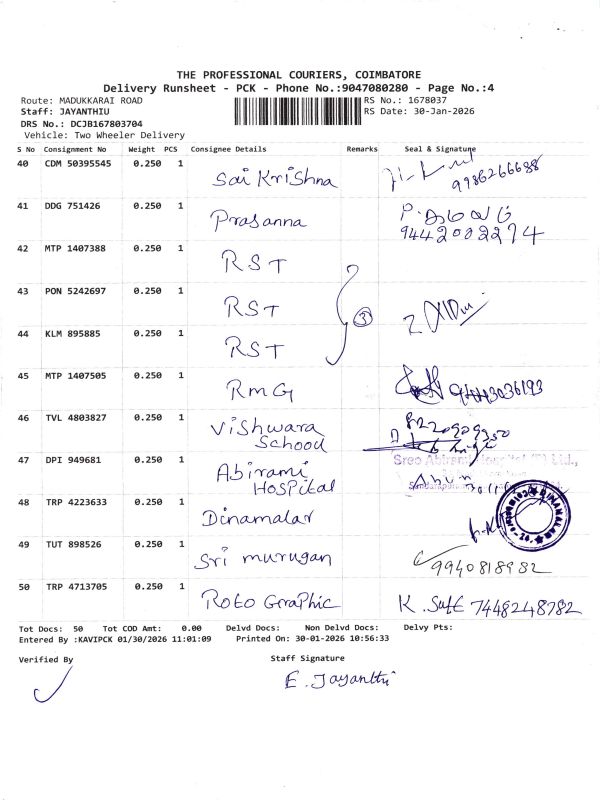 THE PROFESSIONAL COURIERS, COIMBATORE
Delivery Runsheet - PCK - Phone No.:9047080280 - Page No.:4
Route: MADUKKARAI ROAD RS No.: 1678037
Staff: JAYANTHIU RS Date: 30-Jan-2026
DRS No.: DCJB167803704
Vehicle: Two Wheeler Delivery
S No Consignment No Weight PCS Consignee Details Remarks Seal & Signature
40 CDM 50395545 0.250 1 Sai Krishna 9986266688
41 DDG 751426 0.250 1 Prasanna
9442002274
42 MTP 1407388 0.250 1 RST
43 PON 5242697 0.250 1 RST 3
44 KLM 895885 0.250 1 RST
45 MTP 1407505 0.250 1 RMG
46 TVL 4803827 0.250 1 Vishwara
School
47 DPI 949681 0.250 1 Abirami
Hospital
48 TRP 4223633 0.250 1 Dinamalar
DINAMALAR
49 TUT 898526 0.250 1 Sri murugan 9940818982
50 TRP 4713705 0.250 1 Roto Graphic K. 7448248782
Tot Docs: 50 Tot COD Amt: 0.00 Delvd Docs: Non Delvd Docs: Delvy Pts:
Entered By :KAVIPCK 01/30/2026 11:01:09 Printed On: 30-01-2026 10:56:33
Verified By Staff Signature
E. Jayanthi